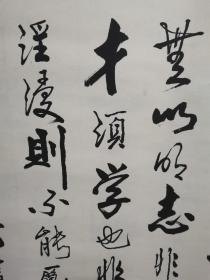 無以明志非
才須学也非
淫慢則不能